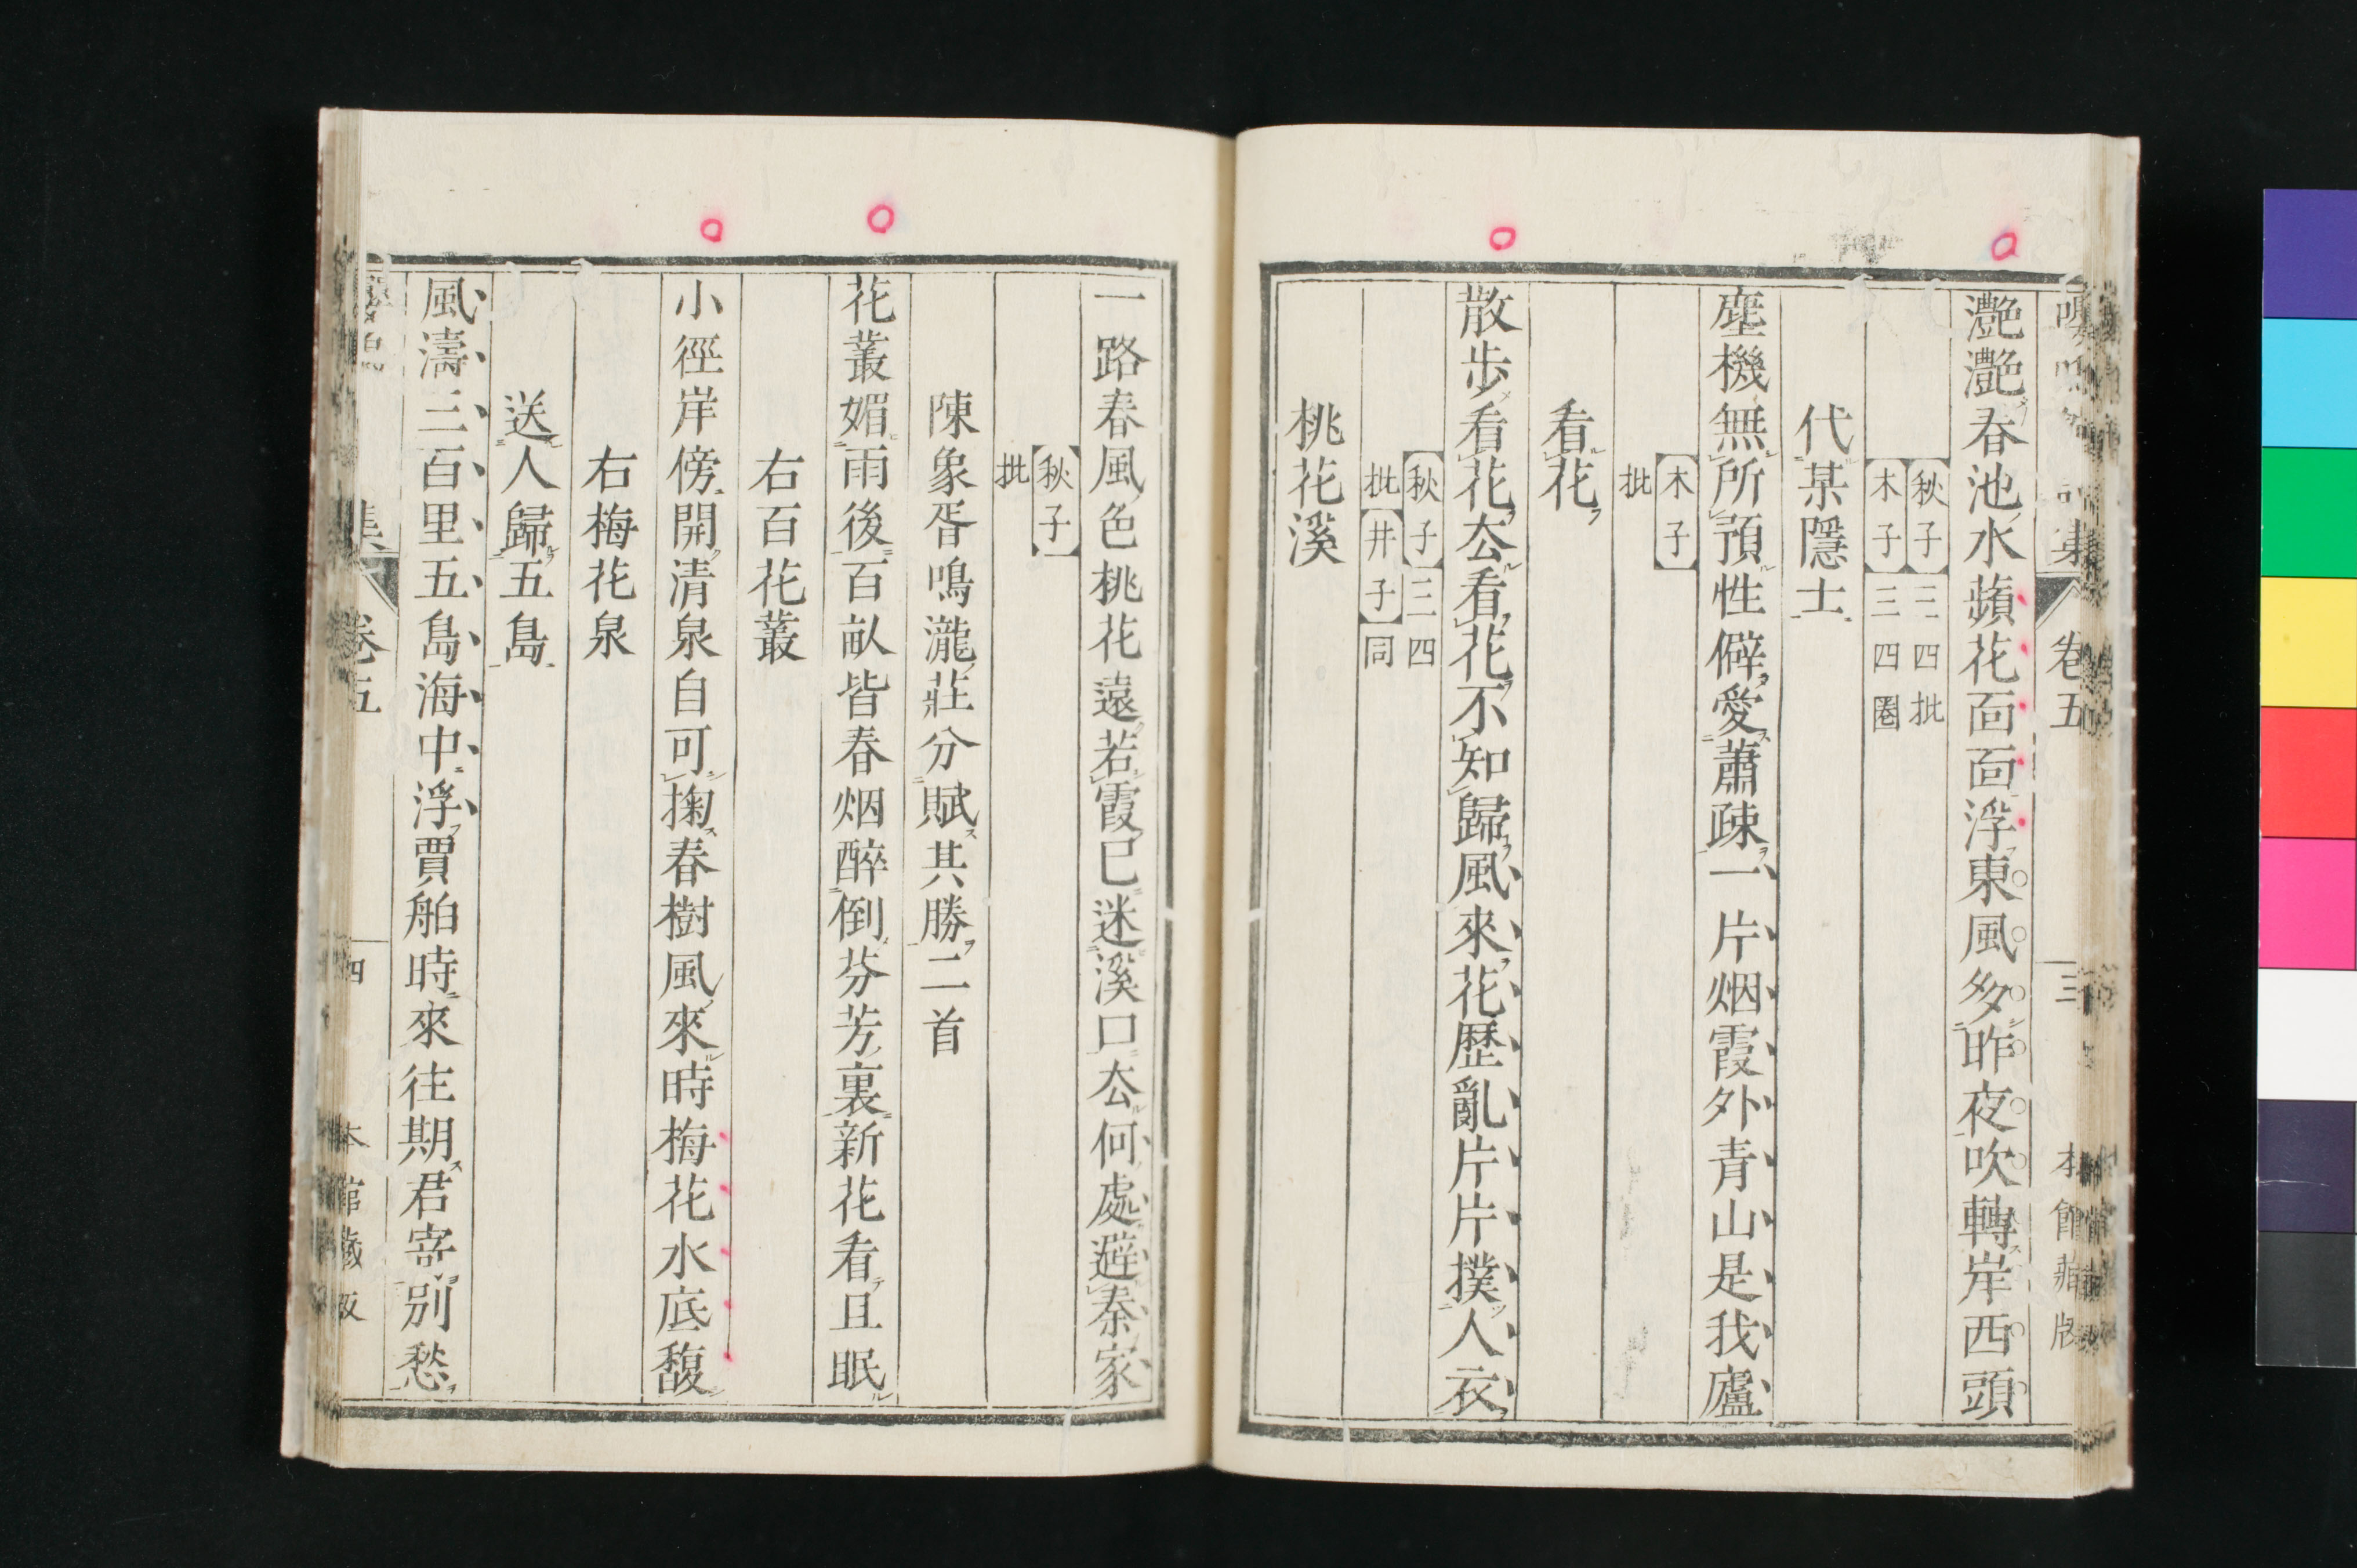 卷五
三
灔灔春池水蘋花面面浮東風多昨夜吹轉岸西頭
【秋子】三四批
【木子】三四圈
代某隱士
塵機無所預性僻愛蕭疎一片烟霞外青山是我廬
【木子】
批
看花
散步看花去看花不知歸風來花歷亂片片撲人衣
【秋子】三四
批【井子】同
桃花溪
一路春風色桃花遠若霞已迷溪口去何處避秦家
【秋子】
批
陳象胥鳴瀧莊分賦其勝二首
花叢媚雨後百畝皆春烟醉倒芬芳裏新花看且眠
右百花叢
小徑岸傍開清泉自可掬春樹風來時梅花水底馥
右梅花泉
送人歸五島
風濤三百里五島海中浮賈舶時來往期君寄別愁
集
卷五
四
本館藏版